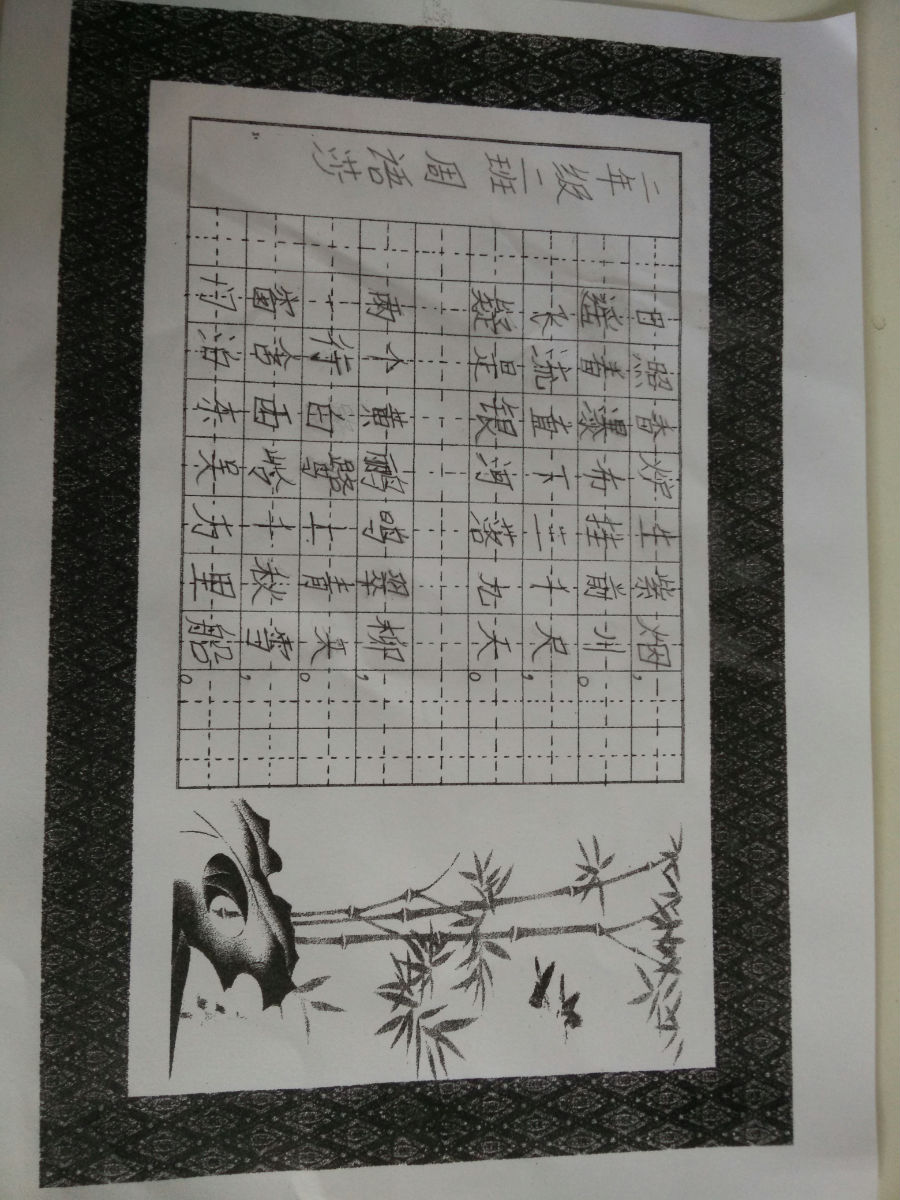 二年级二班周语莎
日照香炉生紫烟，
遥看瀑布挂前川。
飞流直下三千尺，
疑是银河落九天。
两个黄鹂鸣翠柳，
一行白鹭上青天。
窗含西岭千秋雪，
门泊东吴万里船。